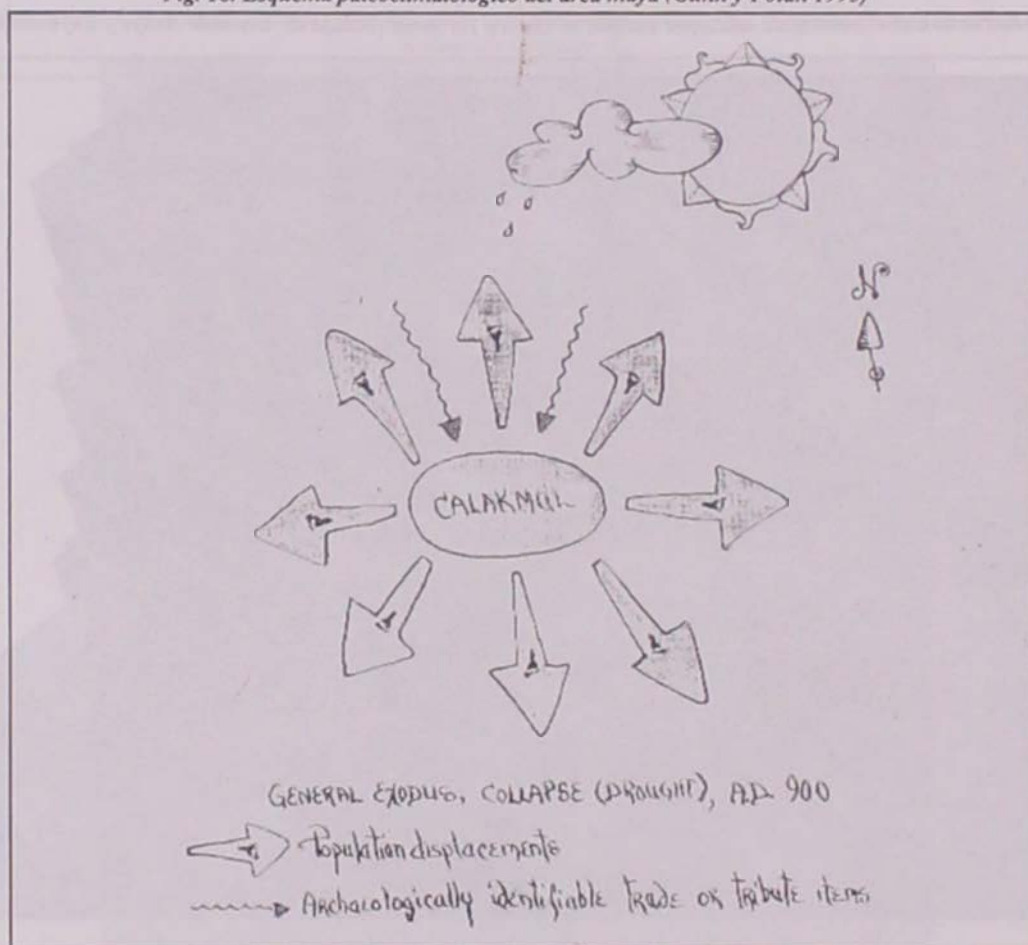 Fig. 10. Esquema paleoclimatológico del área maya (Gunn y Folan 1996)
N
CALAKMUL
GENERAL EXODUS, COLLAPSE (DROUGHT), A.D. 900
Population displacements
Archaeologically identifiable trade or tribute items